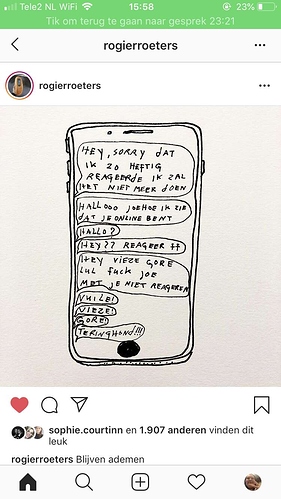 Tele2 NL WiFi 15:58 23%
Tik om terug te gaan naar gesprek 23:21
rogierroeters
rogierroeters
HEY, SORRY DAT
IK ZO HEFTIG
REAGEERDE IK ZAL
HET NIET MEER DOEN
HALLOOO JOEHOE IK ZIE
DAT JE ONLINE BENT
HALLO?
HEY?? REAGEER ††
HEY VIEZE GORE
LUL FUCK JOE
MET JE NIET REAGEREN
VUILE!
VIEZE!
GORE!
TERINGHOND!!!
sophie.courtinn en 1.907 anderen vinden dit
leuk
rogierroeters Blijven ademen